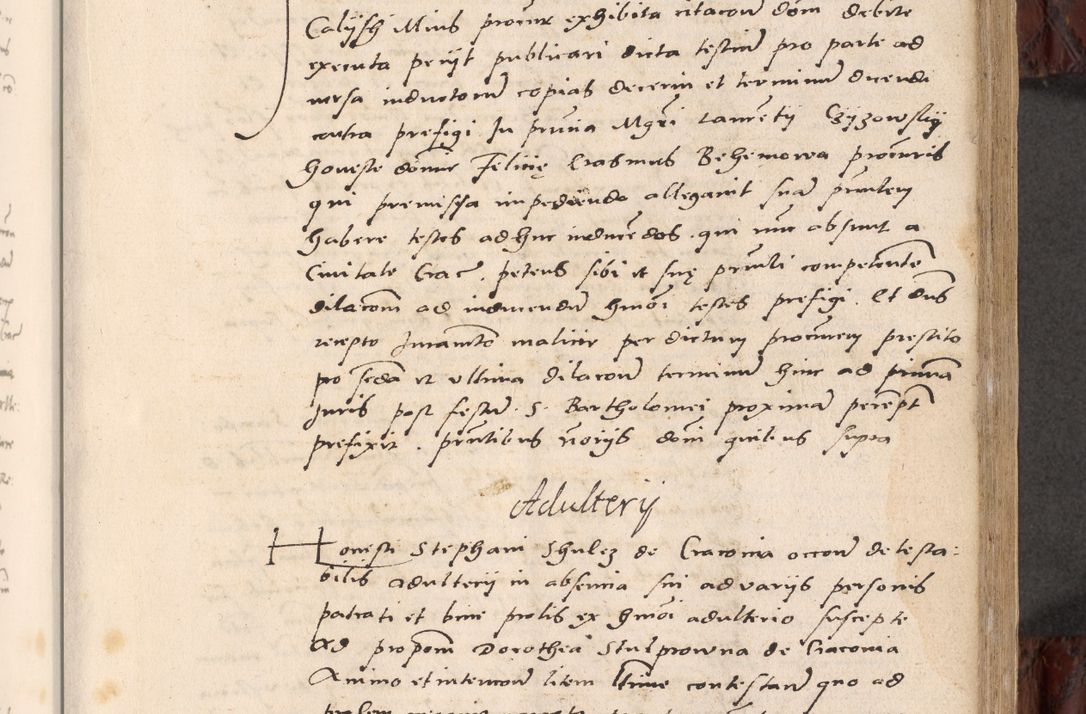 Calysh Mius procur exhibita citacou dom debite
executa periit publicari dicta testiu pro parte ad
versa inductoru copias decerni et terminu dicendi
contra prefigi In pruia Mgri Lauretij Czyzowskij
honeste domine Felicie Erasmus Behemowa procuris
qui premissa impediendo allegauit sua pruitem
habere testes adhuc inducedos. qui nuc absunt a
Ciuitate Crac. petens sibi et sue pruili competente
dilacom ad inducendu hmoi testes prefigi. Et dns
recepto Juramto malicie per dictum procurem prestito
pro seda et vltima dilacou terminu hinc ad primam
Juris post festu. S. Bartholomei proximam perempt
prefixit. pruntibus noriis domi quibus supra
Adulterij
Honesti Stephani Shulcz de Cracouia occoru detesta:
bilis adulterij in absencia sui ad variis personis
patrati et bine prolis ex hmoi adulterio suscepte
Ad propom Dorothea Stulprowna de Cracouia
Animo et intencou litem ltime contestari quo ad